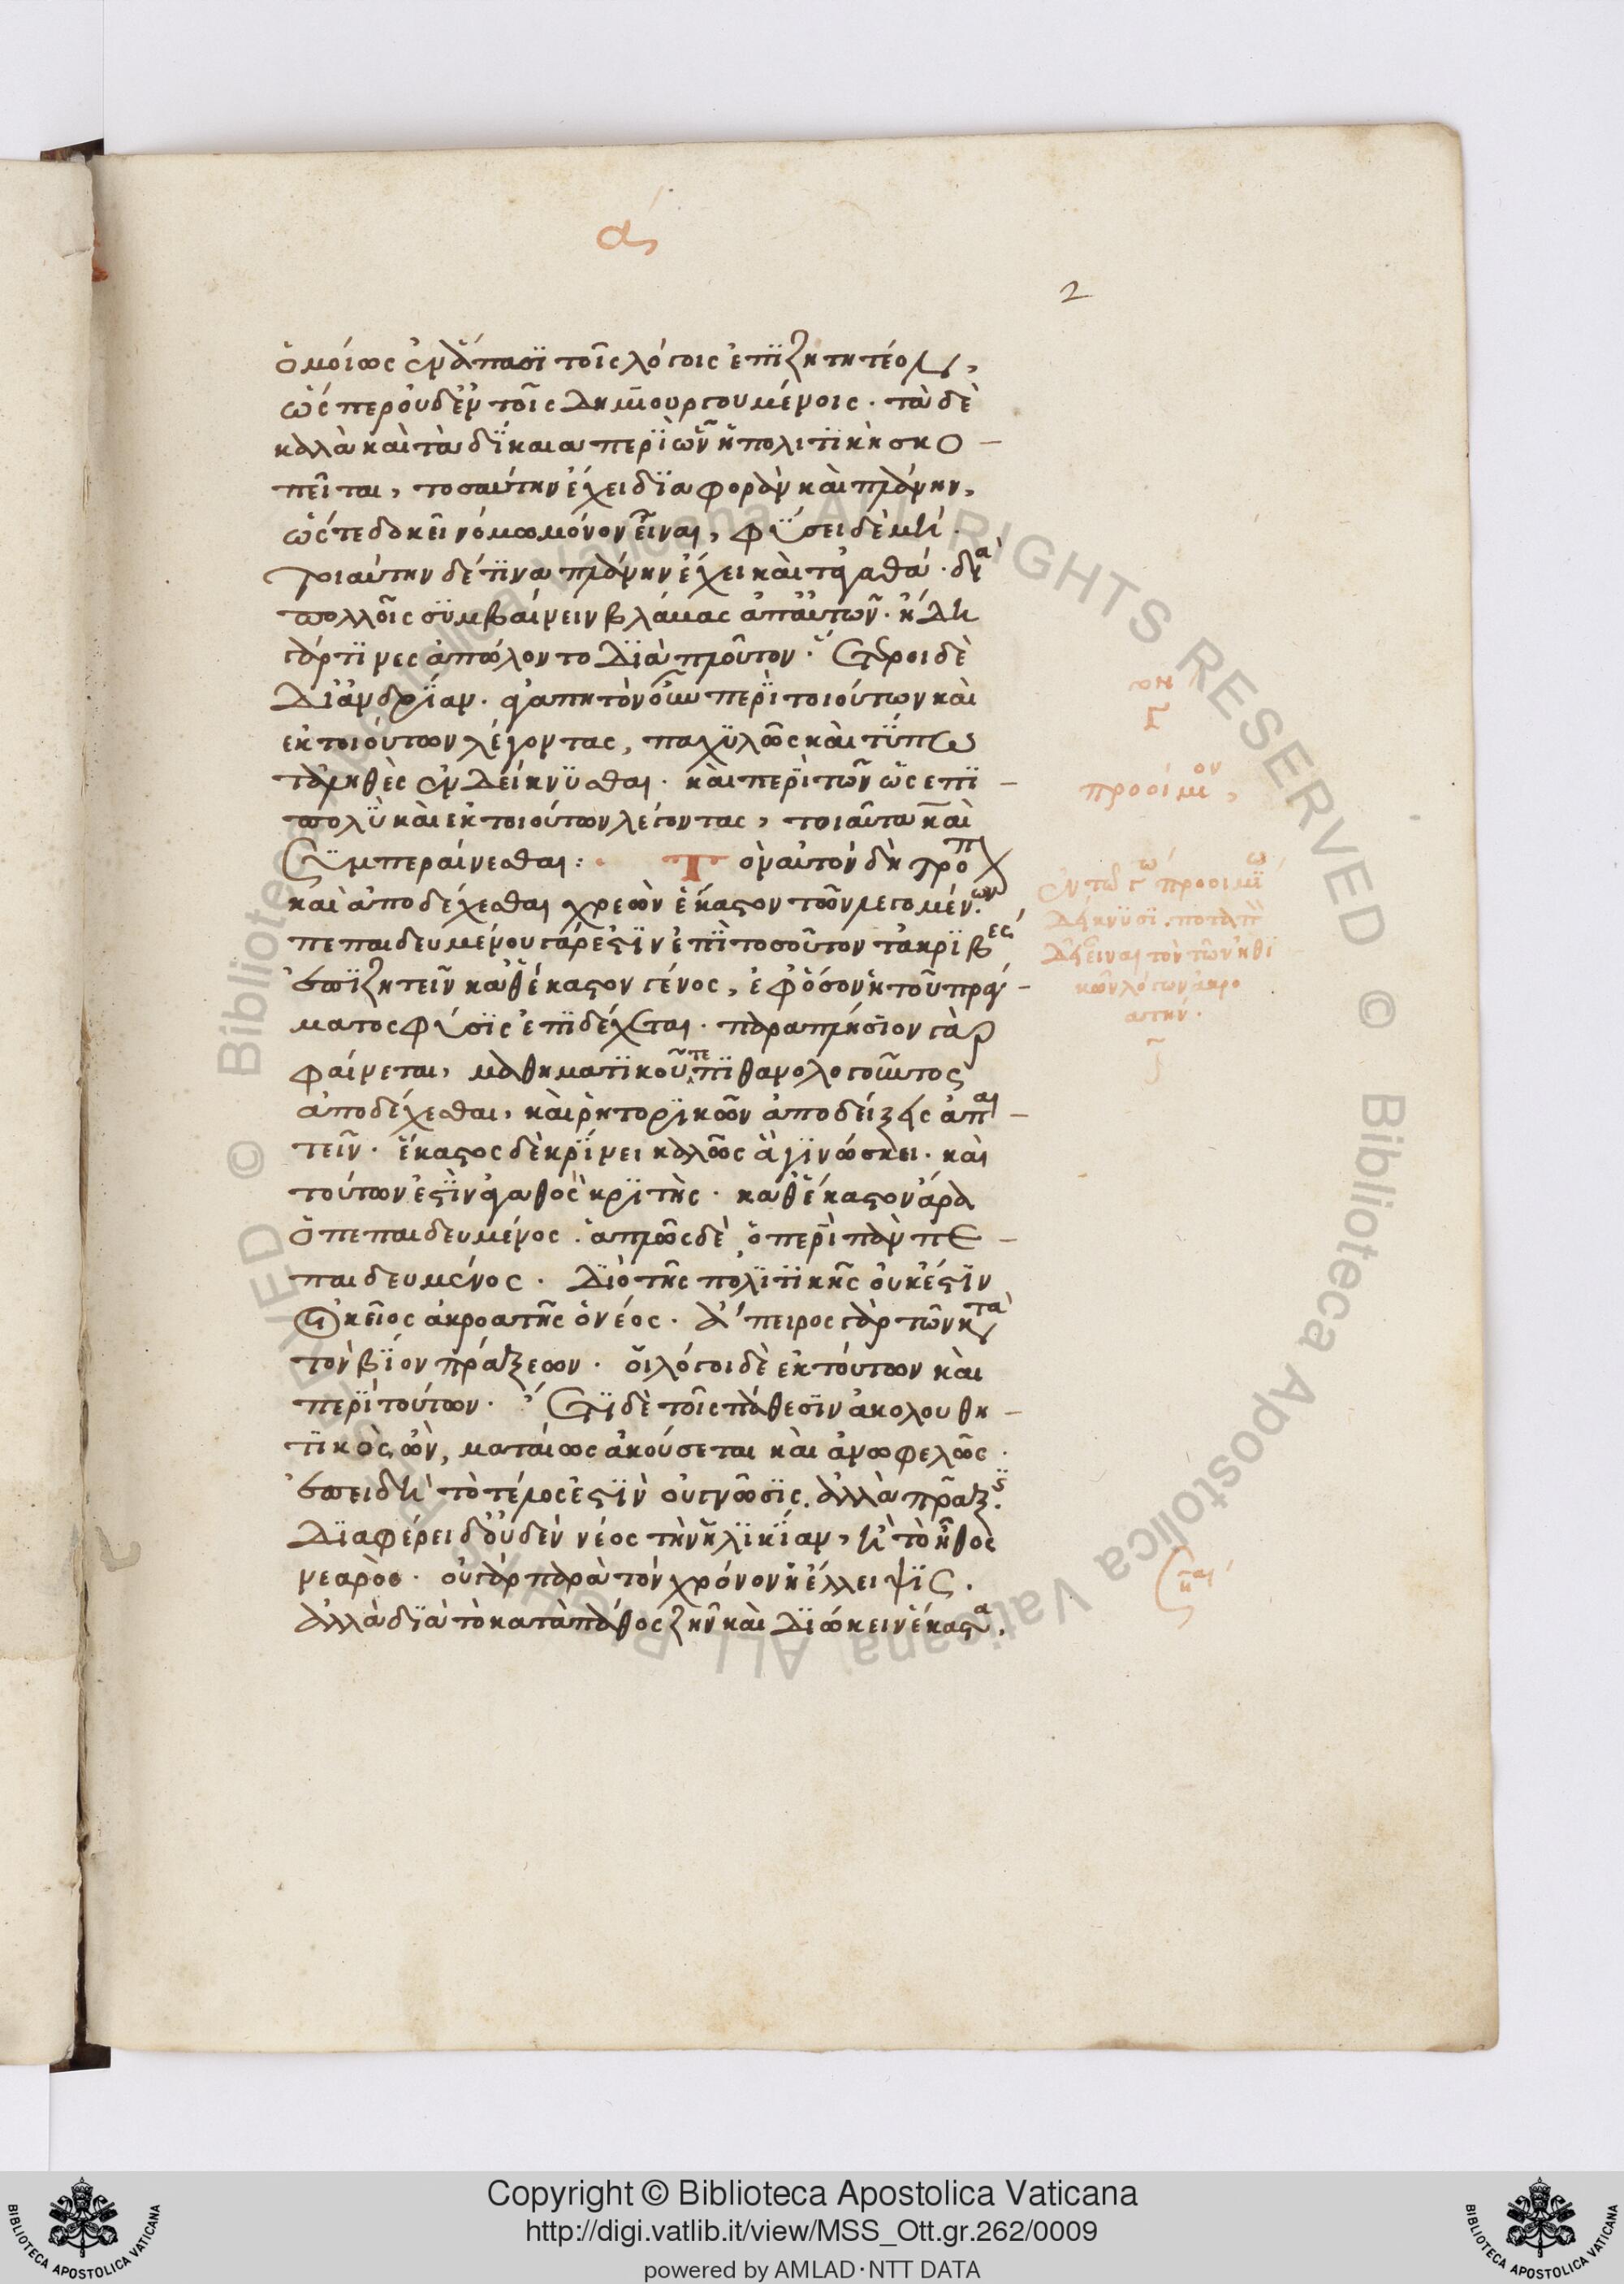 α
2
ὁμοίως ἐν ἅπασι τοῖς λόγοις ἐπιζητητέον,
ὥσπερ οὐδ' ἐν τοῖς δημιουργουμένοις. τὰ δὲ
καλὰ καὶ τὰ δίκαια περὶ ὧν ἡ πολιτικὴ σκο-
πεῖται, τοσαύτην ἔχει διαφορὰν καὶ πλάνην,
ὥστε δοκεῖ νόμω μόνον εἶναι, φύσει δὲ μή.
τοιαύτην δέ τινα πλάνην ἔχει καὶ τἀγαθά. διὰ
πολλοῖς συμβαίνειν βλάβας ἀπ' αὐτῶν. ἤδη
γάρ τινες ἀπώλοντο διὰ πλοῦτον. ἕτεροι δὲ
δι' ἀνδρίαν. ἀγαπητὸν οὖν περὶ τοιούτων καὶ
ἐκ τοιούτων λέγοντας, παχυλῶς καὶ τύπω
τἀληθὲς ἐνδείκνυσθαι. καὶ περὶ τῶν ὡς ἐπι-
πολὺ καὶ ἐκ τοιούτων λέγοντας, τοιαῦτα καὶ
συμπεραίνεσθαι: Τὸν αὐτὸν δὴ τρόπ
καὶ ἀποδέχεσθαι χρεὼν ἕκαστον τῶν λεγομένων.
πεπαιδευμένου γάρ ἐστιν ἐπὶ τοσοῦτον τἀκριβὲς
ἐπιζητεῖν καθ' ἕκαστον γένος, ἐφ' ὅσον ἡ τοῦ πράγ-
ματος φύσις ἐπιδέχεται. παραπλήσιον γὰρ
φαίνεται, μαθηματικοῦ τε πιθανολογοῦντος
ἀποδέχεσθαι, καὶ ῥητορικῶν ἀποδείξεις ἀπαι-
τεῖν. ἕκαστος δὲ κρίνει καλῶς ἃ γινώσκει. καὶ
τούτων ἐστὶν ἀγαθὸς κριτής. καθ' ἕκαστον ἄρα
ὁ πεπαιδευμένος. ἁπλῶς δὲ ὁ περὶ πᾶν πε-
παιδευμένος. διὸ τῆς πολιτικῆς οὐκ ἔστιν
οἰκεῖος ἀκροατὴς ὁ νέος. ἄπειρος γὰρ τῶν κατὰ
τὸν βίον πράξεων. οἱ λόγοι δὲ ἐκ τούτων καὶ
περὶ τούτων. ἔτι δὲ τοῖς πάθεσιν ἀκολουθη-
τικὸς ὤν, ματαίως ἀκούσεται καὶ ἀνωφελῶς.
ἐπειδὴ τὸ τέλος ἐστὶν οὐ γνῶσις. ἀλλὰ πρᾶξις.
διαφέρει δ' οὐδὲν νέος τὴν ἡλικίαν, ἢ τὸ ἦθος
νεαρός. οὐ γὰρ παρὰ τὸν χρόνον ἡ ἔλλειψις.
ἀλλὰ διὰ τὸ κατὰ πάθος ζῆν καὶ διώκειν ἕκαστα.
προοίμιον,
ἐν τῶ γω προοιμίω
δείκνυσι. ποταπ
δεῖ εἶναι τὸν τῶν ἠθι
κῶν λόγων ἀκρο
ατήν.
Copyright © Biblioteca Apostolica Vaticana
http://digi.vatlib.it/view/MSS_Ott.gr.262/0009
powered by AMLAD·NTT DATA
BIBLIOTECA APOSTOLICA VATICANA
BIBLIOTECA APOSTOLICA VATICANA
© Biblioteca Apostolica Vaticana ALL RIGHTS RESERVED © Biblioteca Apostolica Vaticana ALL RIGHTS RESERVED